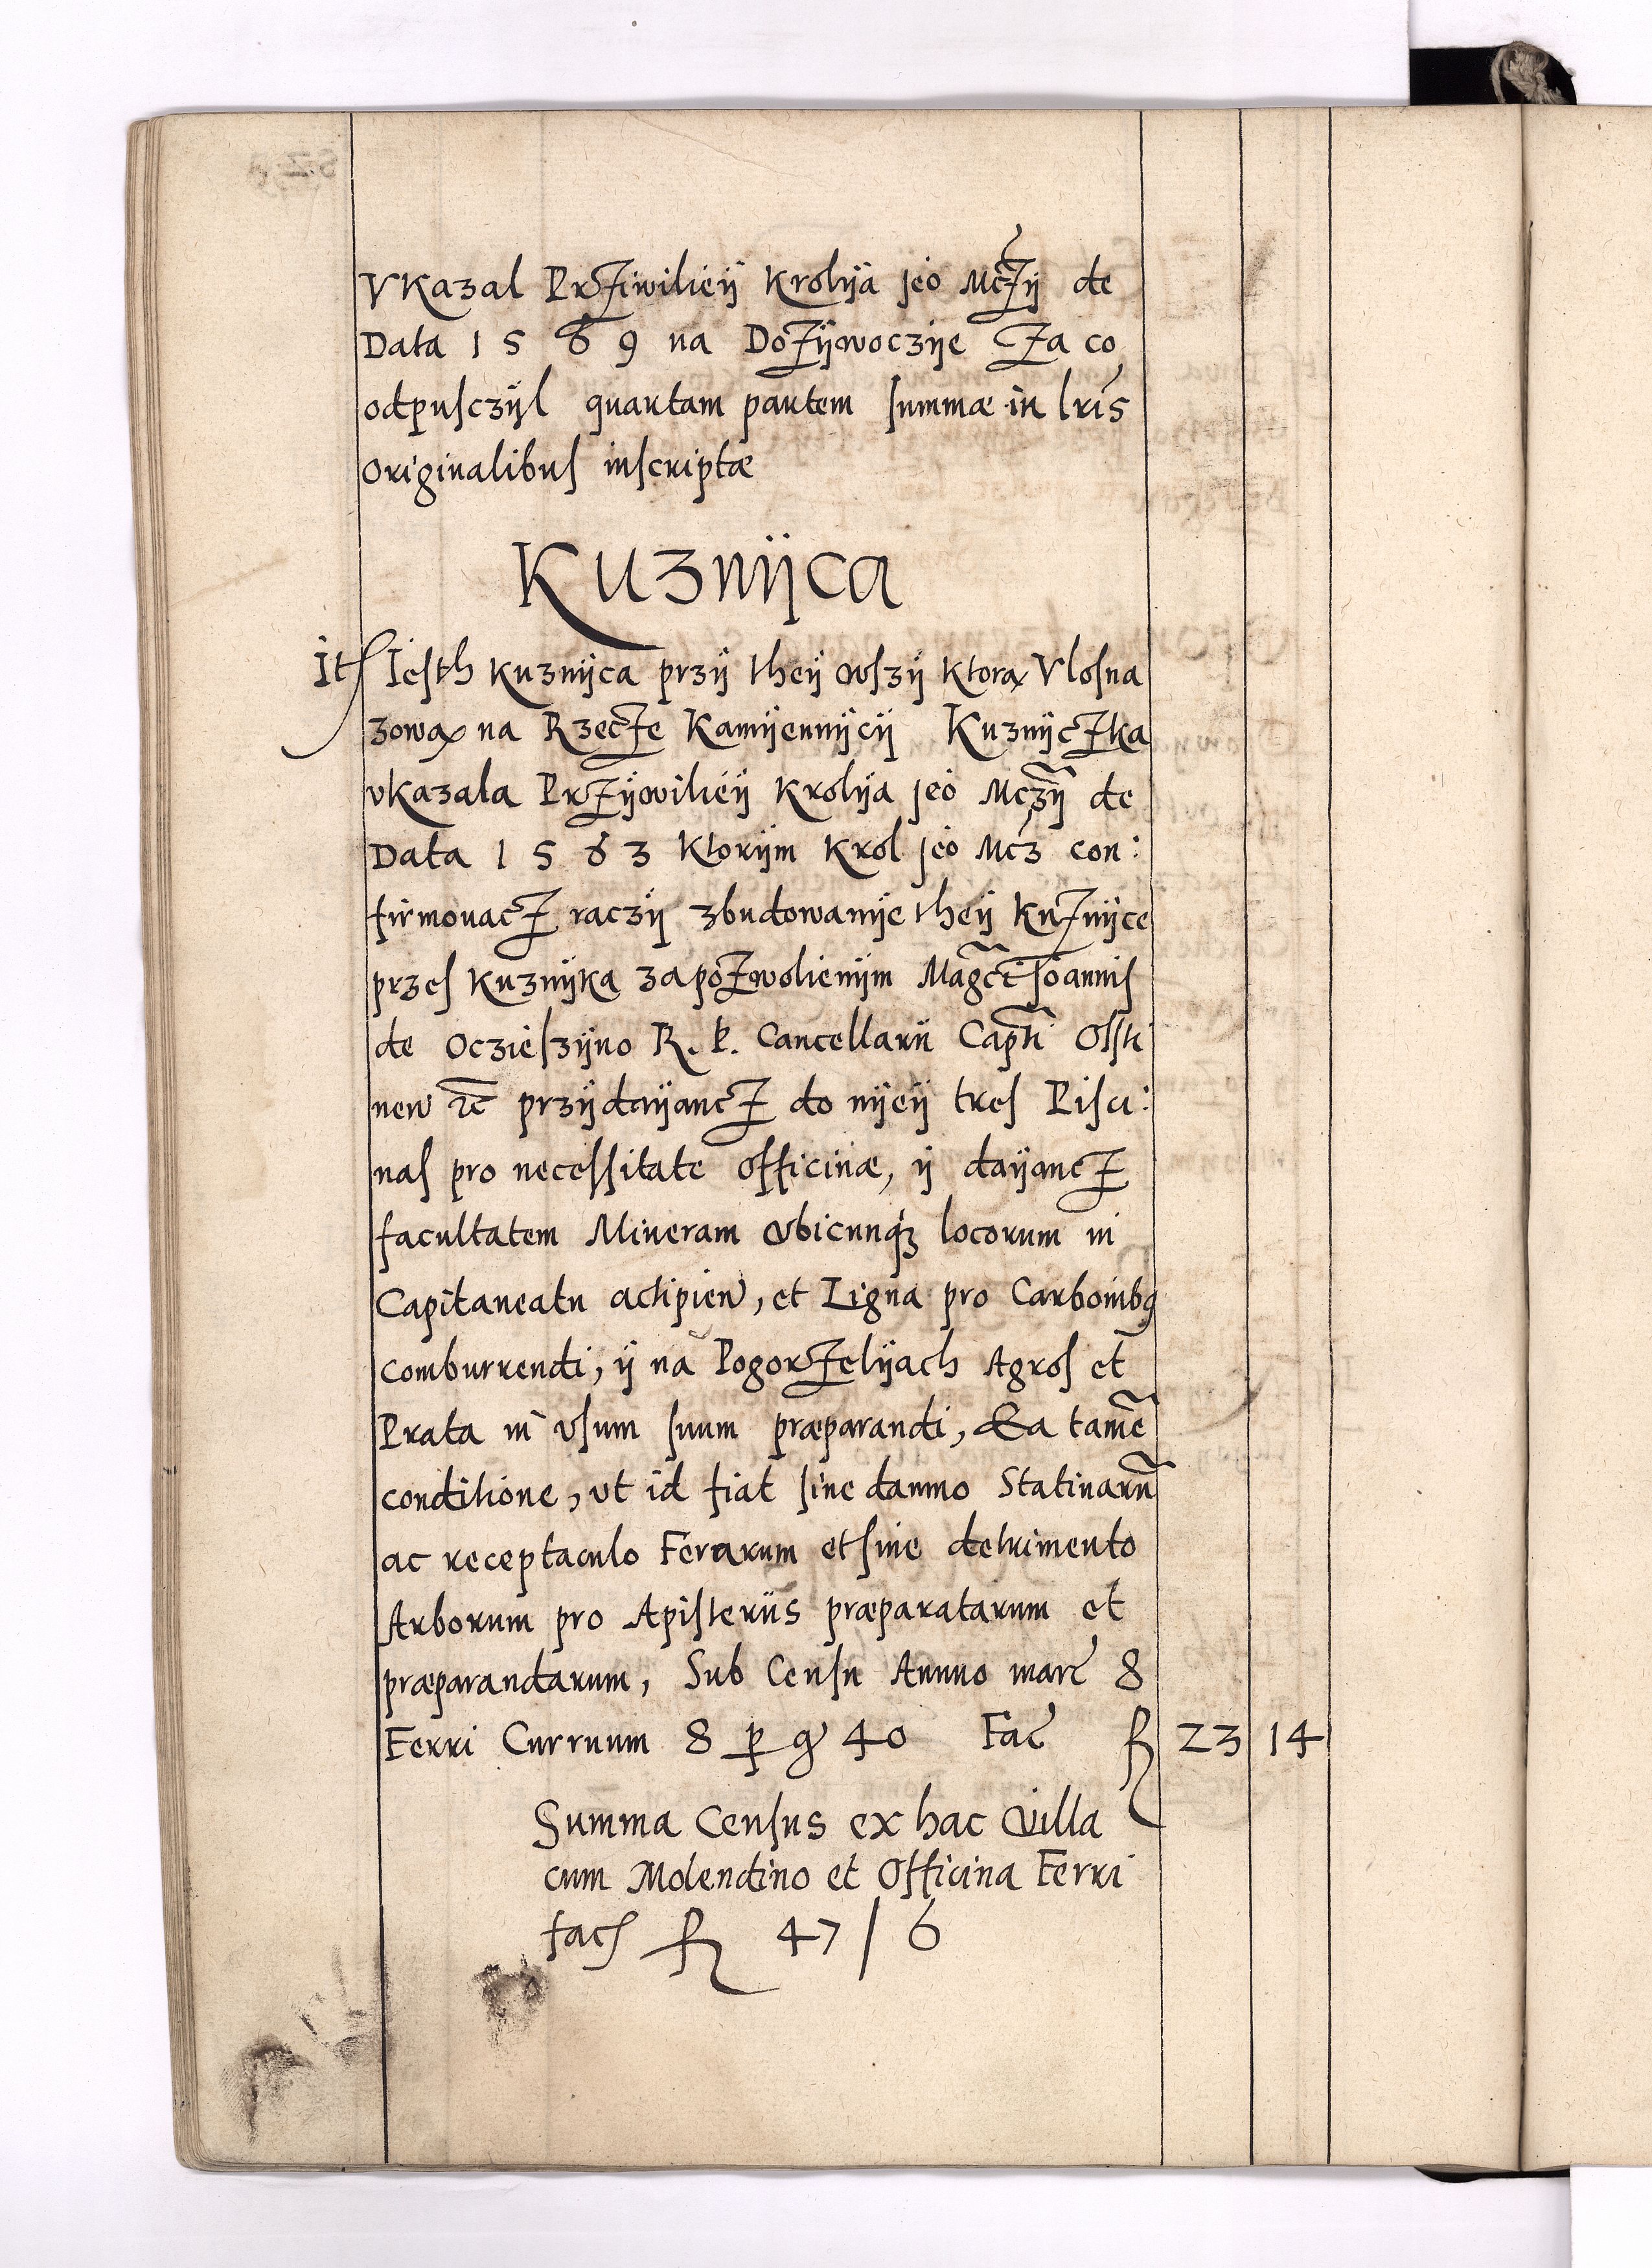 Vkazal Prziwilieÿ Krolÿa jeo Mczÿ de
Data 1569 na Dozÿwoczÿe Za co
odpusczÿl quartam partem summæ in lris
Originalibus inscriptæ
Kuznÿca
It Iesth kuznÿca przÿ theÿ wszÿ ktorą Vlosna
zową na Rzecze Kamÿennÿcÿ Kuznÿczka
vkazala Przÿwilieÿ Krolÿa jeo Mczÿ de
Data 1563 ktorÿm Krol jeo Mcz con:
firmovacz raczÿ zbudowanÿe theÿ kuznÿce
przes kuznÿka za pozwolienÿm Magci Joannis
de Oczieszÿno R. P. Cancellarii Capti Olsti
nen etc przÿdaÿancz do nÿeÿ tres Pisci:
nas pro necessitate officinæ, ÿ daÿancz
facultatem Mineram vbicunq3 locorum in
Capitaneatu accipien, et Ligna pro Carbonibq
comburrendi, ÿ na Pogorzelÿach Agros et
Prata in vsum suum præparandi, Ea tamē
conditione, vt id fiat sine damno Statinarū
ac receptaculo Ferarum et sine detrimento
Arborum pro Apisteriis præparatarum et
præparandarum, Sub Censu Annuo marc 8
Ferri Curruum 8 p gr 40 Fac f 23 14
Summa Census ex hac villa
cum Molendino et Officina Ferri
fac f 47 / 6